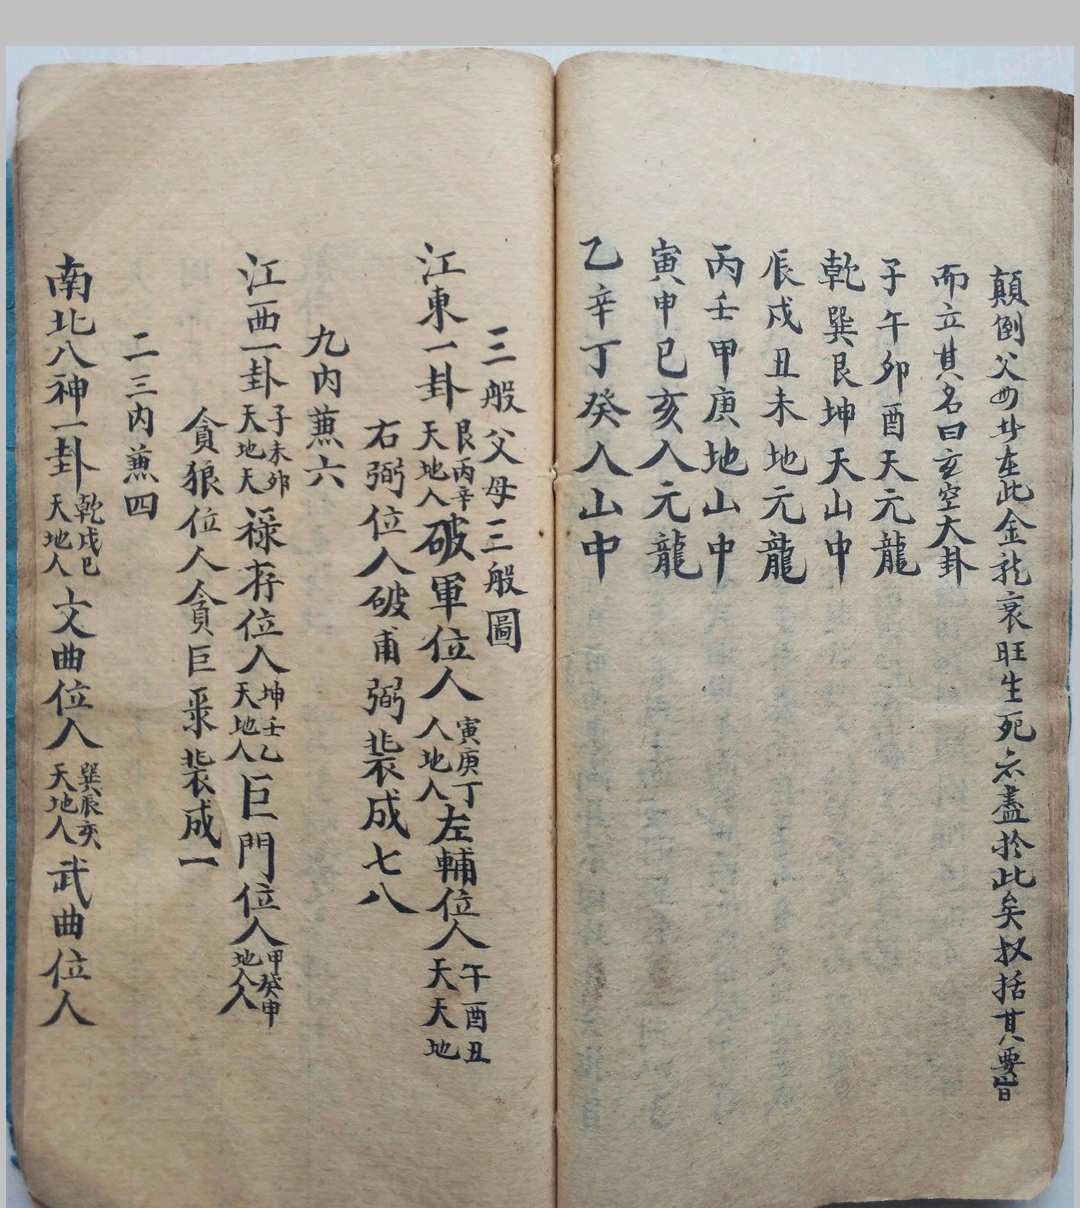 顛倒父母卦在此金龍衰旺生死亦盡於此矣叔括其要旨
而立其名曰玄空大卦
子午卯酉天元龍
乾巽艮坤天山中
辰戌丑未地元龍
丙壬甲庚地山中
寅申巳亥入元龍
乙辛丁癸人山中
三般父母三般圖
江東一卦艮丙辛天地人破軍位人寅庚丁人地人左輔位人午酉丑天天地
右弼位人破甫弼裝成七八
九内兼六
江西一卦子未卯天地天祿存位入坤壬乙天地人巨門位入甲癸申地人人
貪狼位人貪巨彔裝成一
二三内兼四
南北八神一卦乾戌巳天地人文曲位入巽辰亥天地人武曲位人